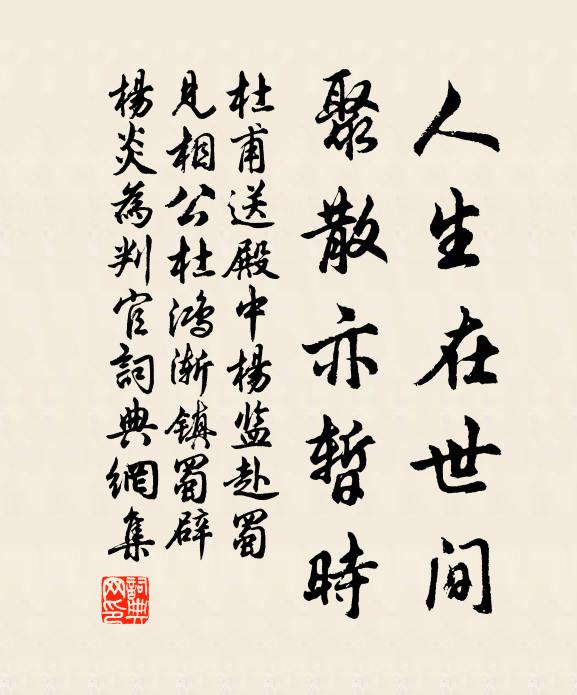 人生在世間
聚散亦暫時
杜甫送殿中楊监赴蜀
見相公杜鴻漸鎮蜀辟
楊炎為判官詞典網集
詞典
网印